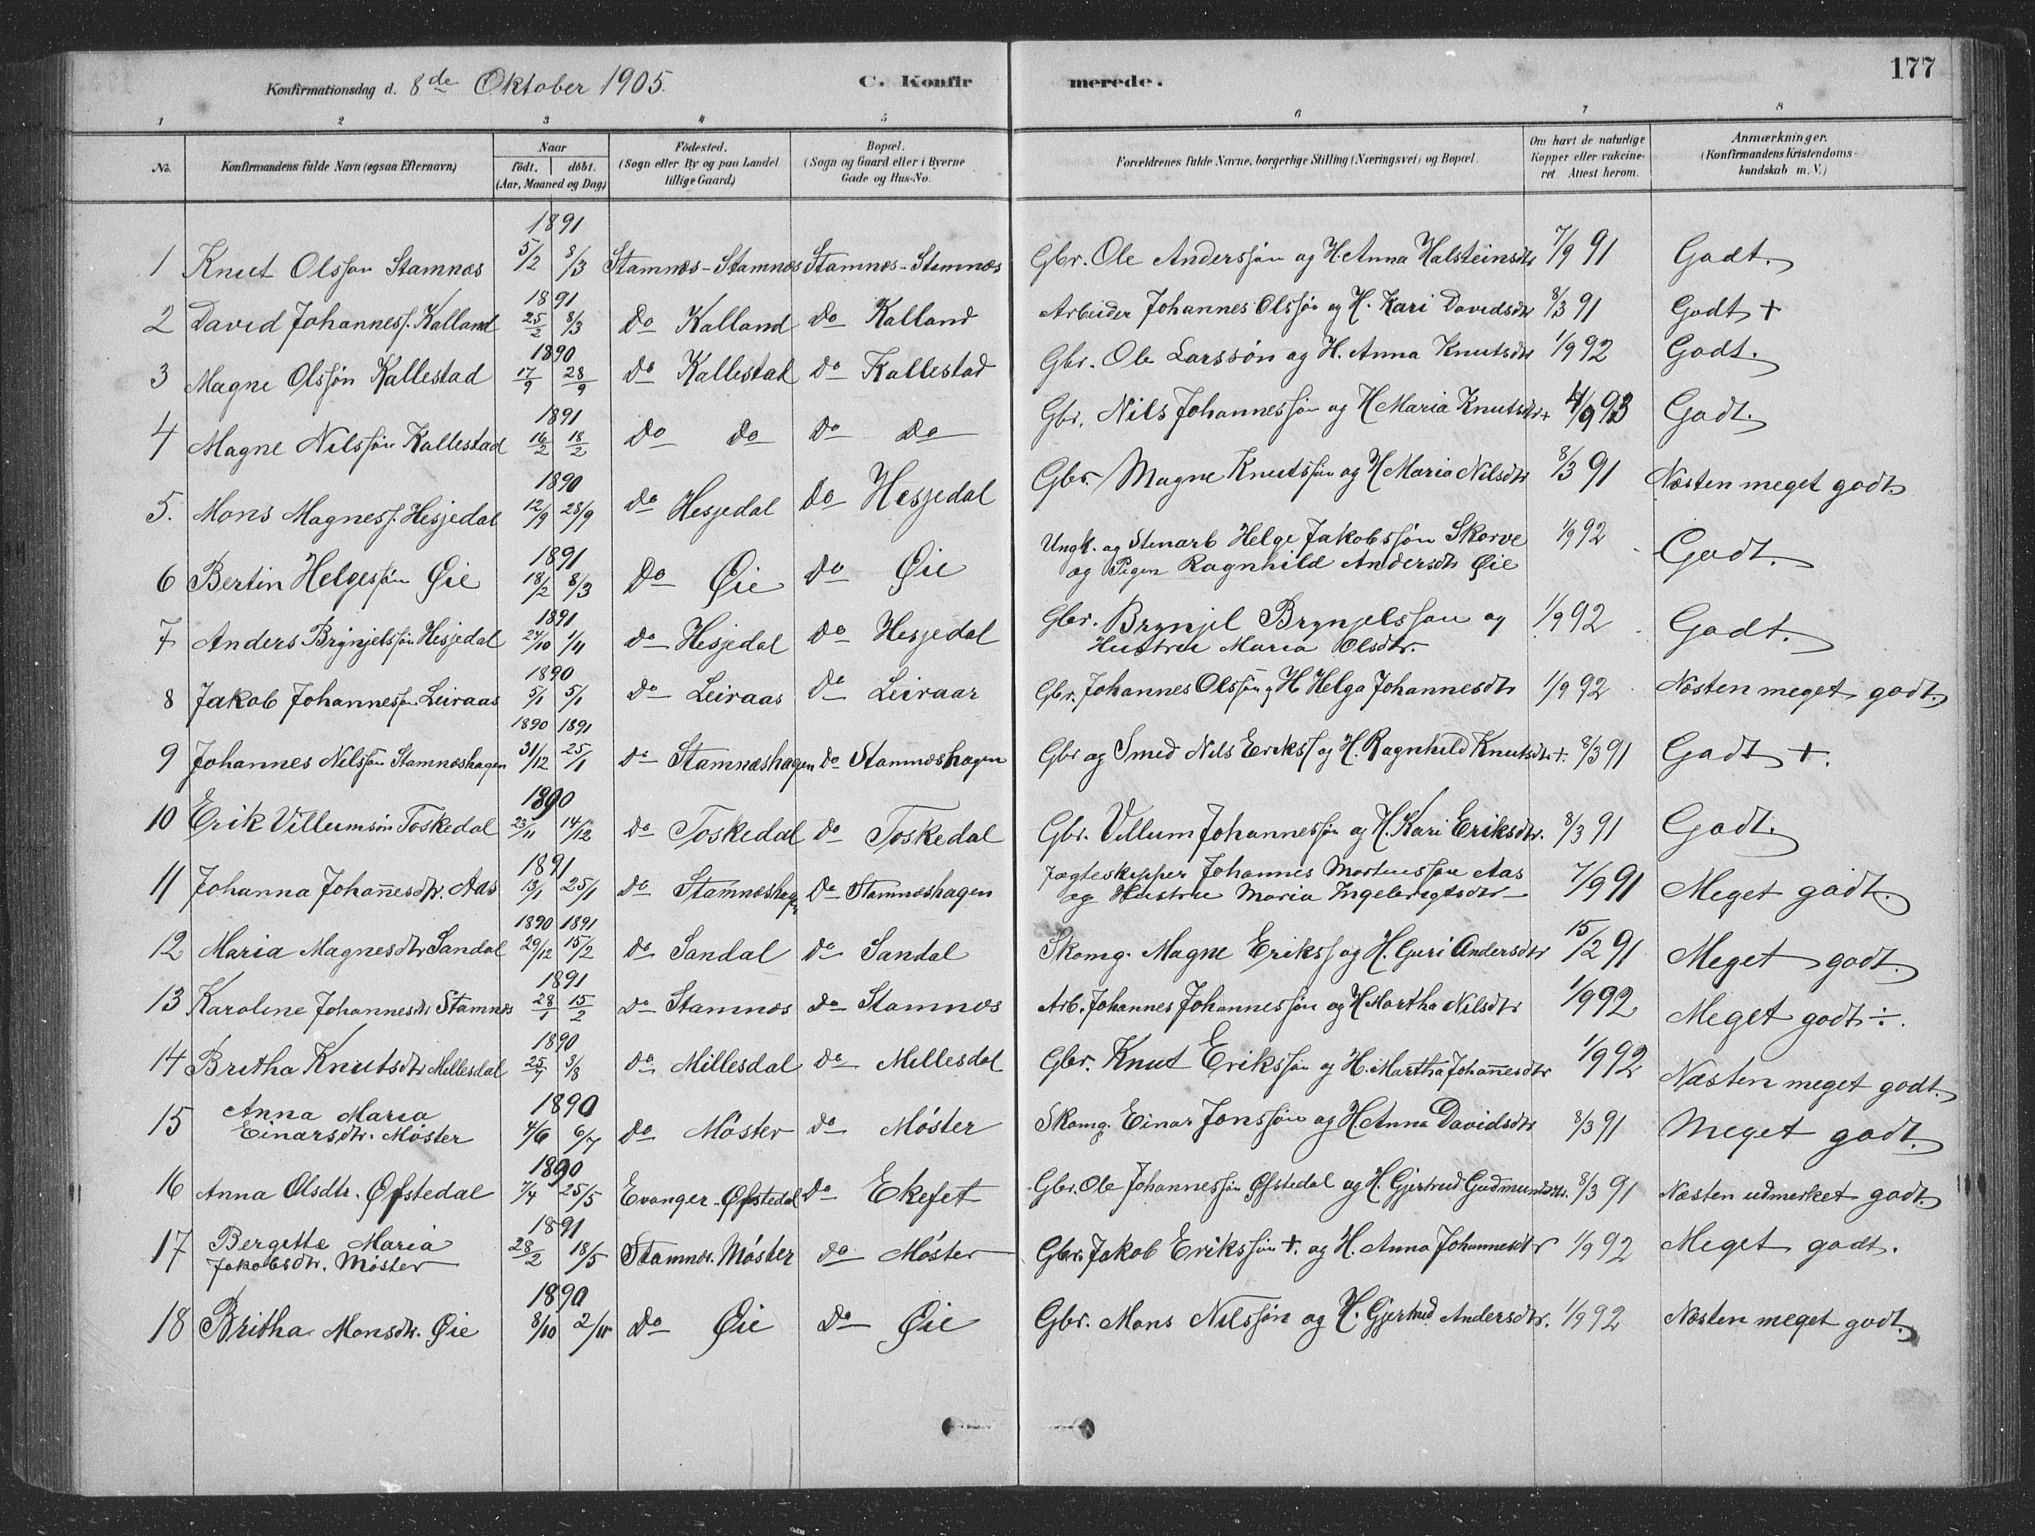 Konfirmationsdag d. 8de Oktober 1905. C. Konfirmerede. 177
1 2 3 4 5 6 7 8
No. Konfirmandens fulde Navn (ogsaa Efternavn) Naar født. døbt. (Aar, Maaned og Dag) Födested. (Sogn eller By og paa Landet tillige Gaard) Bopæl. (Sogn og Gaard eller i Byerne Gade og Hus-No. Forældrenes fulde Navne, borgerlige Stilling (Næringsvei) og Bopæl. Om havt de naturlige Kopper eller vakcineret Attest herom. Anmærkninger. (Konfirmandens Kristendomskundskab m. V.)
1891
1 Knut Olsson Stamnes 5/2 8/3 Stamnes - Stamnes Stamnes - Stamnes Gbr. Ole Anderssøn og H. Anna Halsteinsdtr 7/9 91 Godt.
1891
2 David Johanness. Kalland 25/2 8/3 Do Kalland Do Kalland Arbeider Johannes Olssøn og H. Kari Davidsdtr 8/3 91 Godt +
1890
3 Magne Olssøn Kallestad 17/9 28/9 Do Kallestad Do Kallestad Gbr. Ole Larssøn og H. Anna Knutsdtr 1/9 92 Godt.
1891
4 Magne Nilssøn Kallestad 16/2 18/2 Do Do Do Do Gbr. Nils Johannessøn og H Maria Knutsdtr + 4/9 93 Godt.
1890
5. Mons Magness. Hesjedal 12/9 28/9 Do Hesjedal Do Hesjedal Gbr. Magne Knutssøn og H Maria Nilsdtr 8/3 91 Næsten meget godt
1891
6 Bertin Helgessøn Øie 18/2 8/3 Do Øie Do Øie Ungk. og Stenarb Helge Jakobssøn Skorve
og Pigen Ragnhild Andersdtr Øie 1/9 92 Godt.
1891
7 Anders Brynjelssøn Hesjedal 24/10 1/11 Do Hesjedal Do Hesjedal Gbr. Brynjel Brynjelsson og
Hustru Maria Olsdtr. 1/9 92 Godt.
1890
8 Jakob Johannessøn Leiraas 5/1 5/1 Do Leiraas Do Leiraas Gbr. Johannes Olssøn og H Helga Johannesdtr 1/9 92 Næsten meget godt.
1890 1891
9 Johannes Nilssøn Stamneshagen 31/12 25/1 Do Stamneshagen Do Stamneshagen Gbr og Smed Nils Erikss og H. Ragnhild Knutsdtr +. 8/3 91 Godt +.
1890
10 Erik Villumsøn Toskedal 23/11 14/12 Do Toskedal Do Toskedal Gbr. Villum Johannessøn og H. Kari Eriksdtr. 8/3 91 Godt.
1891
11 Johanna Johañesdtr. Aas 13/1 25/1 Do Stamneshagen Do Stamneshagen Jægteskipper Johannes Mortenssøn Aas
og Hustru Maria Ingebregtsdtr 7/9 91 Meget godt.
1890 1891
12 Maria Magnesdtr Sandal 29/12 15/2 Do Sandal Do Sandal Skomg. Magne Erikss og H. Guri Andersdtr 15/2 91 Meget godt.
1891
13 Karoline Johannesdtr Stamnes 28/1 15/2 Do Stamnes Do Stamnes Arb. Johannes Johannessøn og H Martha Nilsdtr 1/9 92 Meget godt ÷.
1890
14 Britha Knutsdtr Millesdal 25/7 3/8 Do Millesdal Do Millesdal Gbr. Knut Erikssøn og H. Martha Johañesdtr 1/9 92 Næsten meget godt.
1890
15 Anna Maria
Einarsdtr. Møster 4/6 6/7 Do Møster Do Møster Skomg. Einar Jonssøn og H Anna Davidsdtr 8/3 91 Meget godt.
1890
16 Anna Olsdtr. Øfstedal 7/4 25/5 Evanger - Øfstedal Do Ekefet Gbr. Ole Johannessøn Øfstedal og H. Gjertrud Gudmundsdtr. 8/3 91 Næsten udmerket godt.
1891
17 Bergitte Maria
Jakobsdtr. Møster 28/2 18/5 Stamnes. Møster Do Møster Gbr. Jakob Erikssøn +. og H. Anna Johannesdtr 1/9 92 Meget godt.
1890
18 Britha Monsdtr. Øie 8/10 2/11 Do Øie Do Øie Gbr. Mons Nilssøn og H. Gjertrud Andersdtr. 1/9 92 Næsten meget godt.